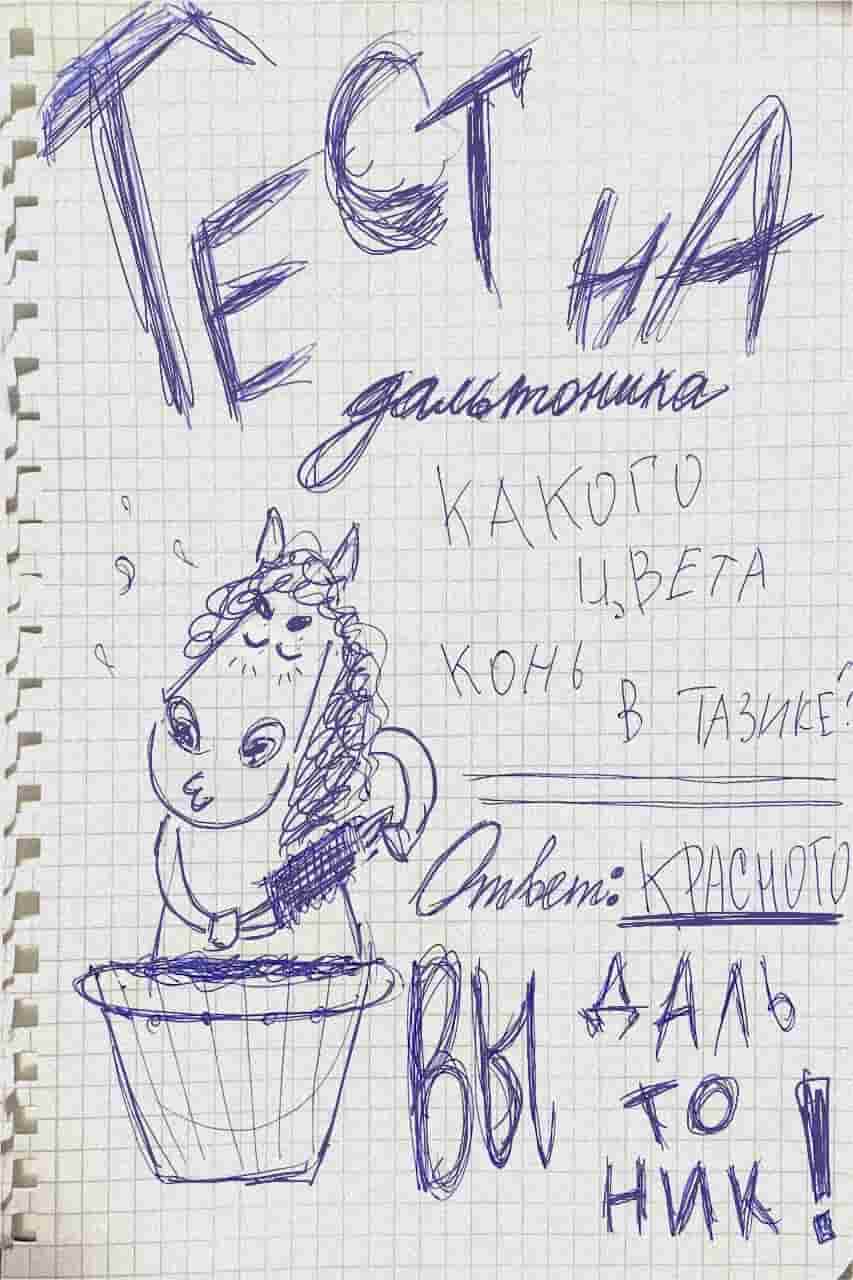 ТЕСТ НА
дальтоника
КАКОГО
ЦВЕТА
КОНЬ
В ТАЗИКЕ?
Ответ: КРАСНОГО
ВЫ ДАЛЬ
ТО
НИК!